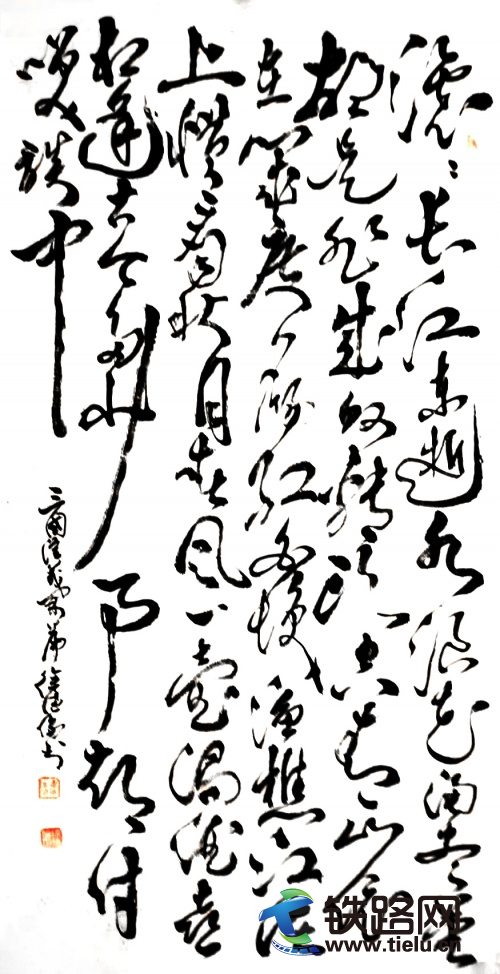 滚滚长江东逝水浪花淘尽英
雄是非成败转头空青山依旧
在几度夕阳红白发渔樵江渚
上惯看秋月春风一壶浊酒喜
相逢古今多少事都付
笑谈中
三國演義
铁路网
www.tielu.cn